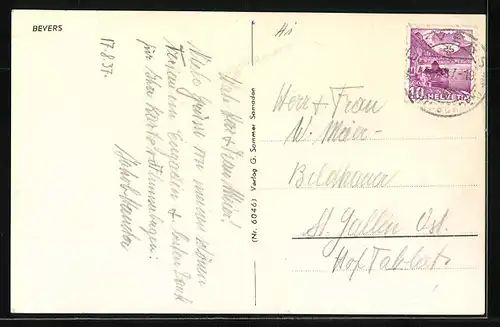 BEVERS
17.8.37.
Liebe Herr & Frau Meier!
Viele Grüsse von meinen schönen
Ferien im Engadin & besten Dank
für Ihre Karte
(Nr. 6049) Verlag G. Sommer Samaden
HELVETIA
10
Herr & Frau
W. Meier-
Bildhauer
St. Gallen Ost.
Hof Tablat